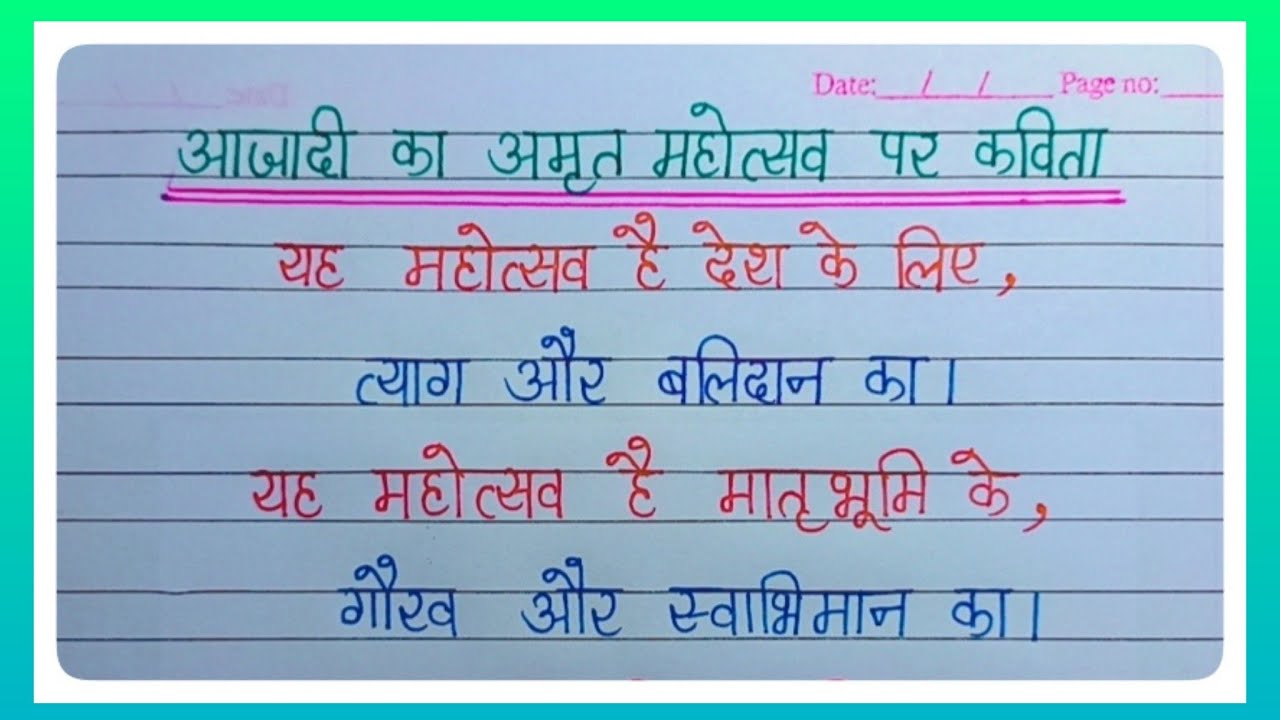 Date: / / Page no:
आजादी का अमृत महोत्सव पर कविता
यह महोत्सव है देश के लिए,
त्याग और बलिदान का।
यह महोत्सव है मातृभूमि के,
गौरव और स्वाभिमान का।